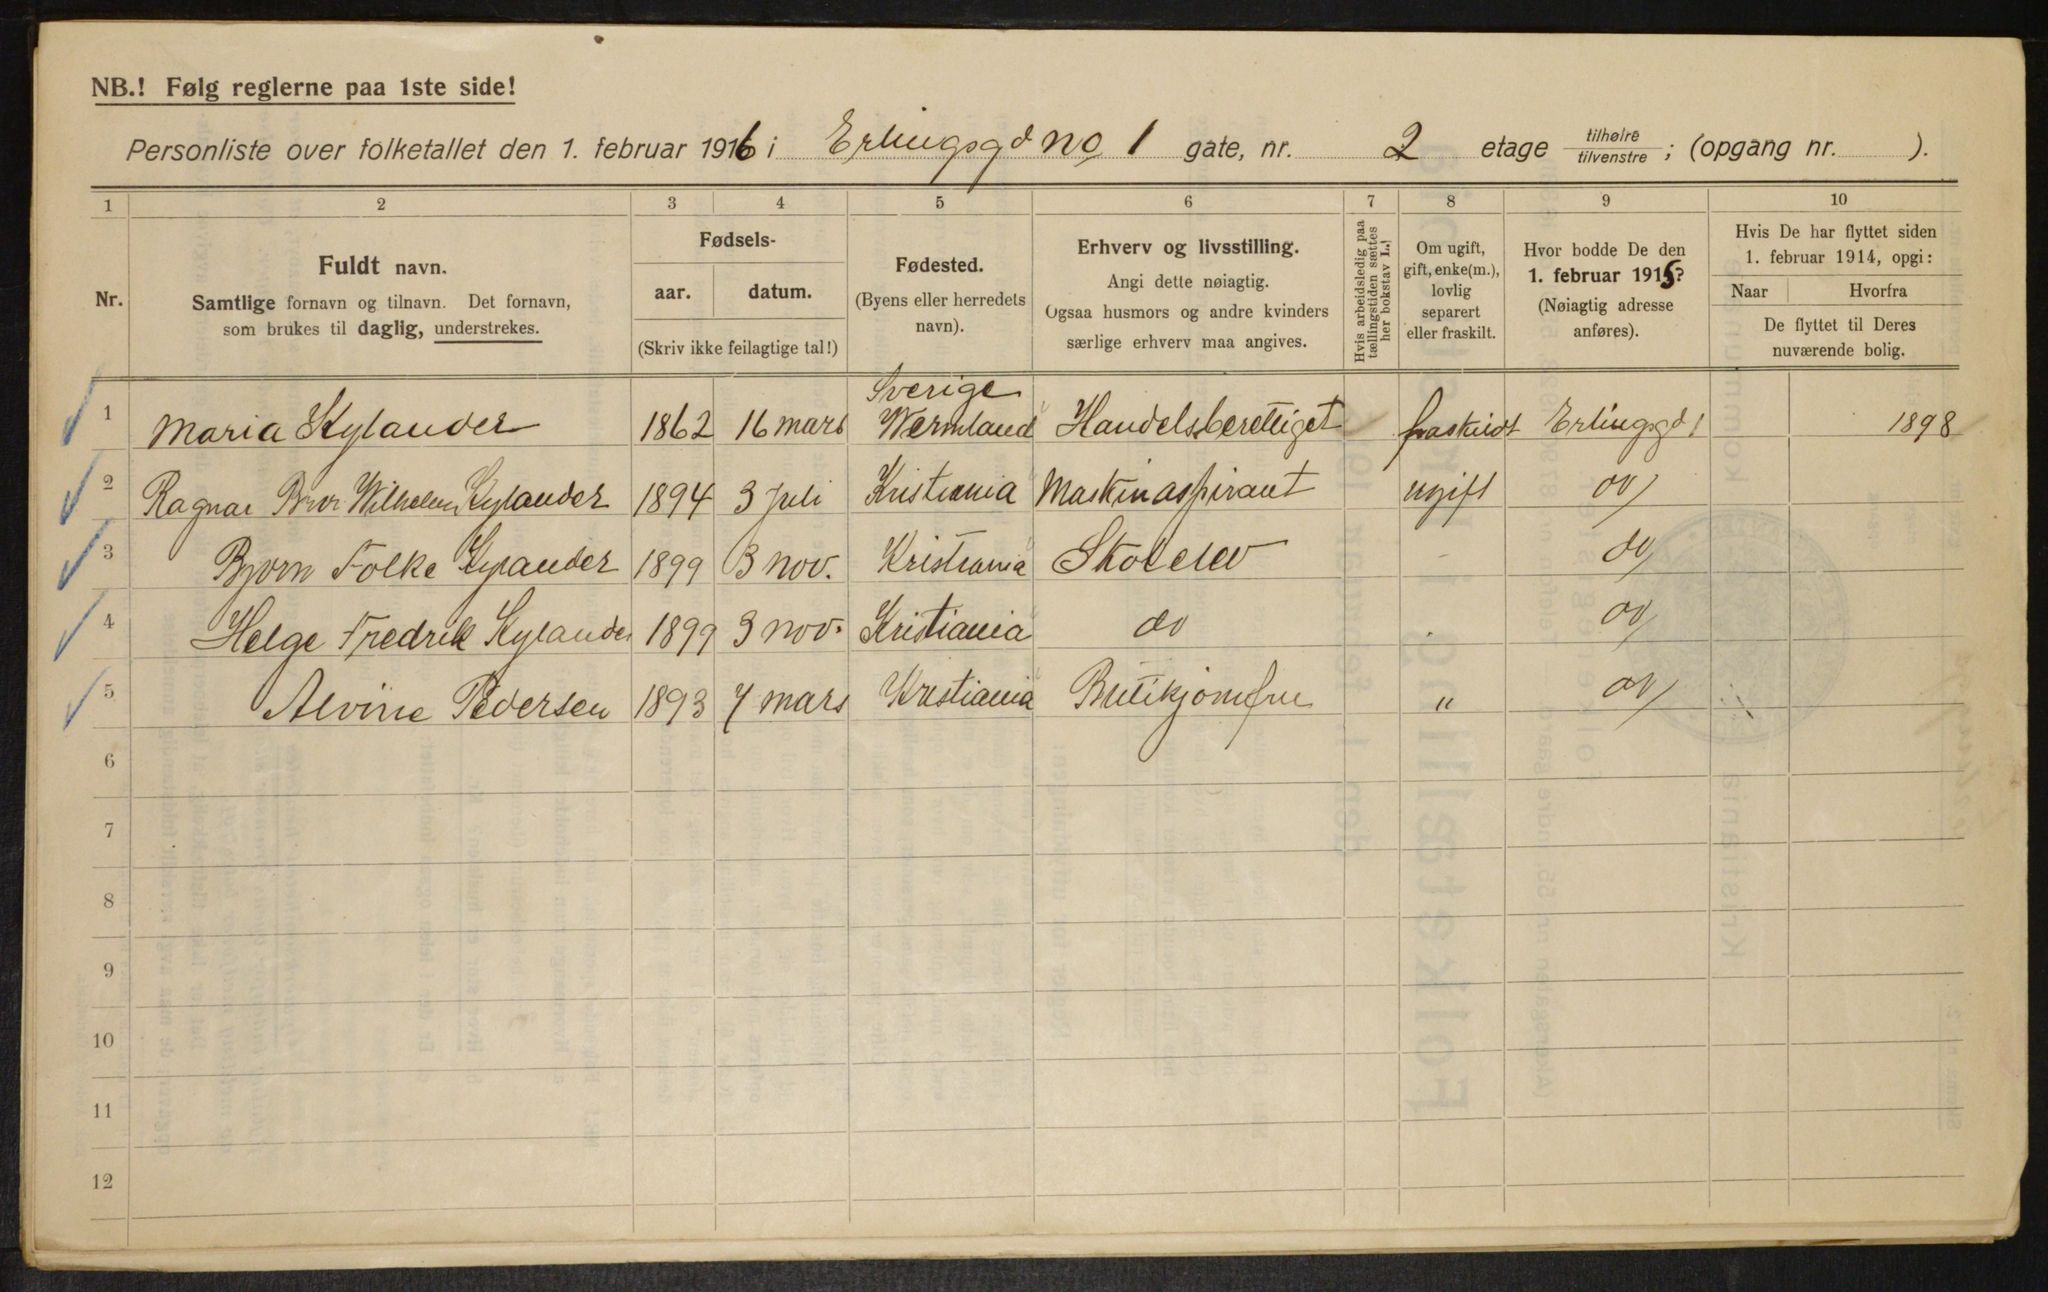 NB.! Følg reglerne paa 1ste side!
Personliste over folketallet den 1. februar 1916 i Erlingsgd no 1 gate, nr. 2 etage tilhøire / tilvenstre ; (opgang nr. ).
1 2 3 4 5 6 7 8 9 10
Nr.
Fuldt navn.
Samtlige fornavn og tilnavn. Det fornavn,
som brukes til daglig, understrekes.
Fødsels-
aar. datum.
(Skriv ikke feilagtige tal!)
Fødested.
(Byens eller herredets
navn).
Erhverv og livsstilling.
Angi dette nøiagtig.
Ogsaa husmors og andre kvinders
særlige erhverv maa angives.
Hvis arbeidsledig paa
tællingstiden sættes
her bokstav L.!
Om ugift,
gift, enke(m.),
lovlig
separert
eller fraskilt.
Hvor bodde De den
1. februar 1915?
(Nøiagtig adresse
anføres).
Hvis De har flyttet siden
1. februar 1914, opgi:
Naar Hvorfra
De flyttet til Deres
nuværende bolig.
1 Maria Kylander 1862 16 mars Sverige Wermland Handelsberettiget fraskildt Erlingsgd 1 1898
2 Ragnar Bror Wilhelm Kylander 1894 3 Juli Kristiania Maskinaspirant ugift do
3 Bjorn Folke Kylander 1899 3 nov. Kristiania Skolelev - do
4 Helge Fredrik Kylander 1899 3 nov. Kristiania do do
5 Alvine Pedersen 1893 7 mars Kristiania Butikjomfru " do
6
7
8
9
10
11
12